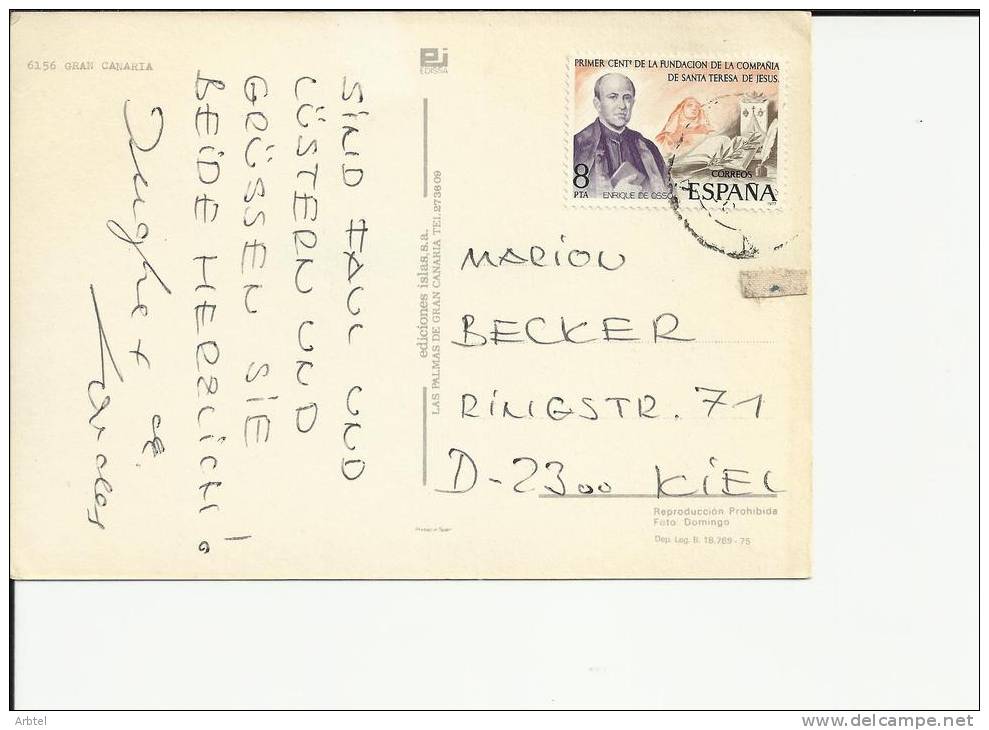 6156 GRAN CANARIA
SIND FAUL UND
LÜSTERN UND
GRÜSSEN SIE
BEIDE HERZLICH!
EDISSA
ediciones islas, s.a.
LAS PALMAS DE GRAN CANARIA TEL 273609
PRIMER CENTº DE LA FUNDACION DE LA COMPAÑIA
DE SANTA TERESA DE JESUS.
8
PTA
ENRIQUE DE OSSO
CORREOS
ESPAÑA
1977
MARION
BECKER
RINGSTR. 71
D-2300 KIEL
Printed in Spain
Reproducción Prohibida
Foto Domingo
Dep. Leg. B. 18.789 - 75
Arbtel
www.delcampe.net